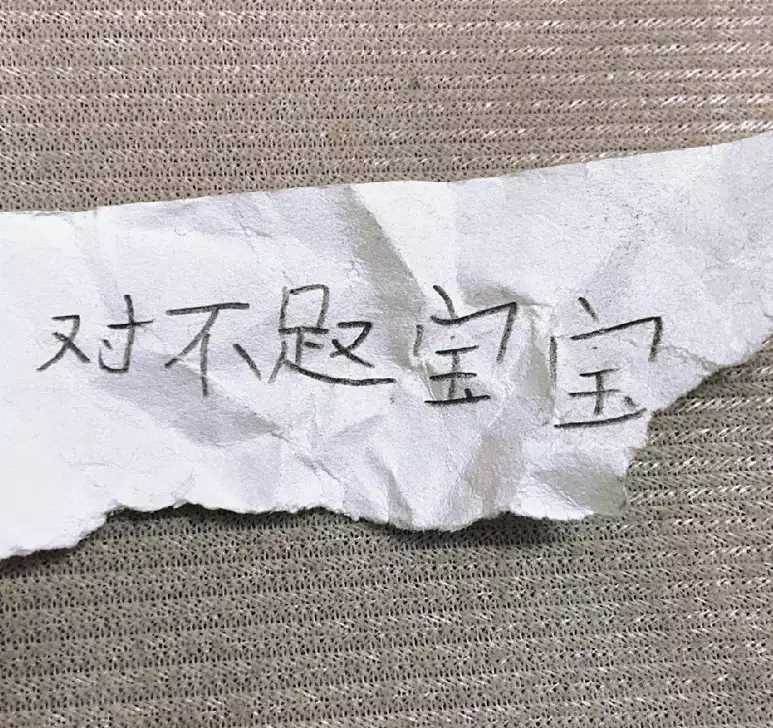 对不起宝宝